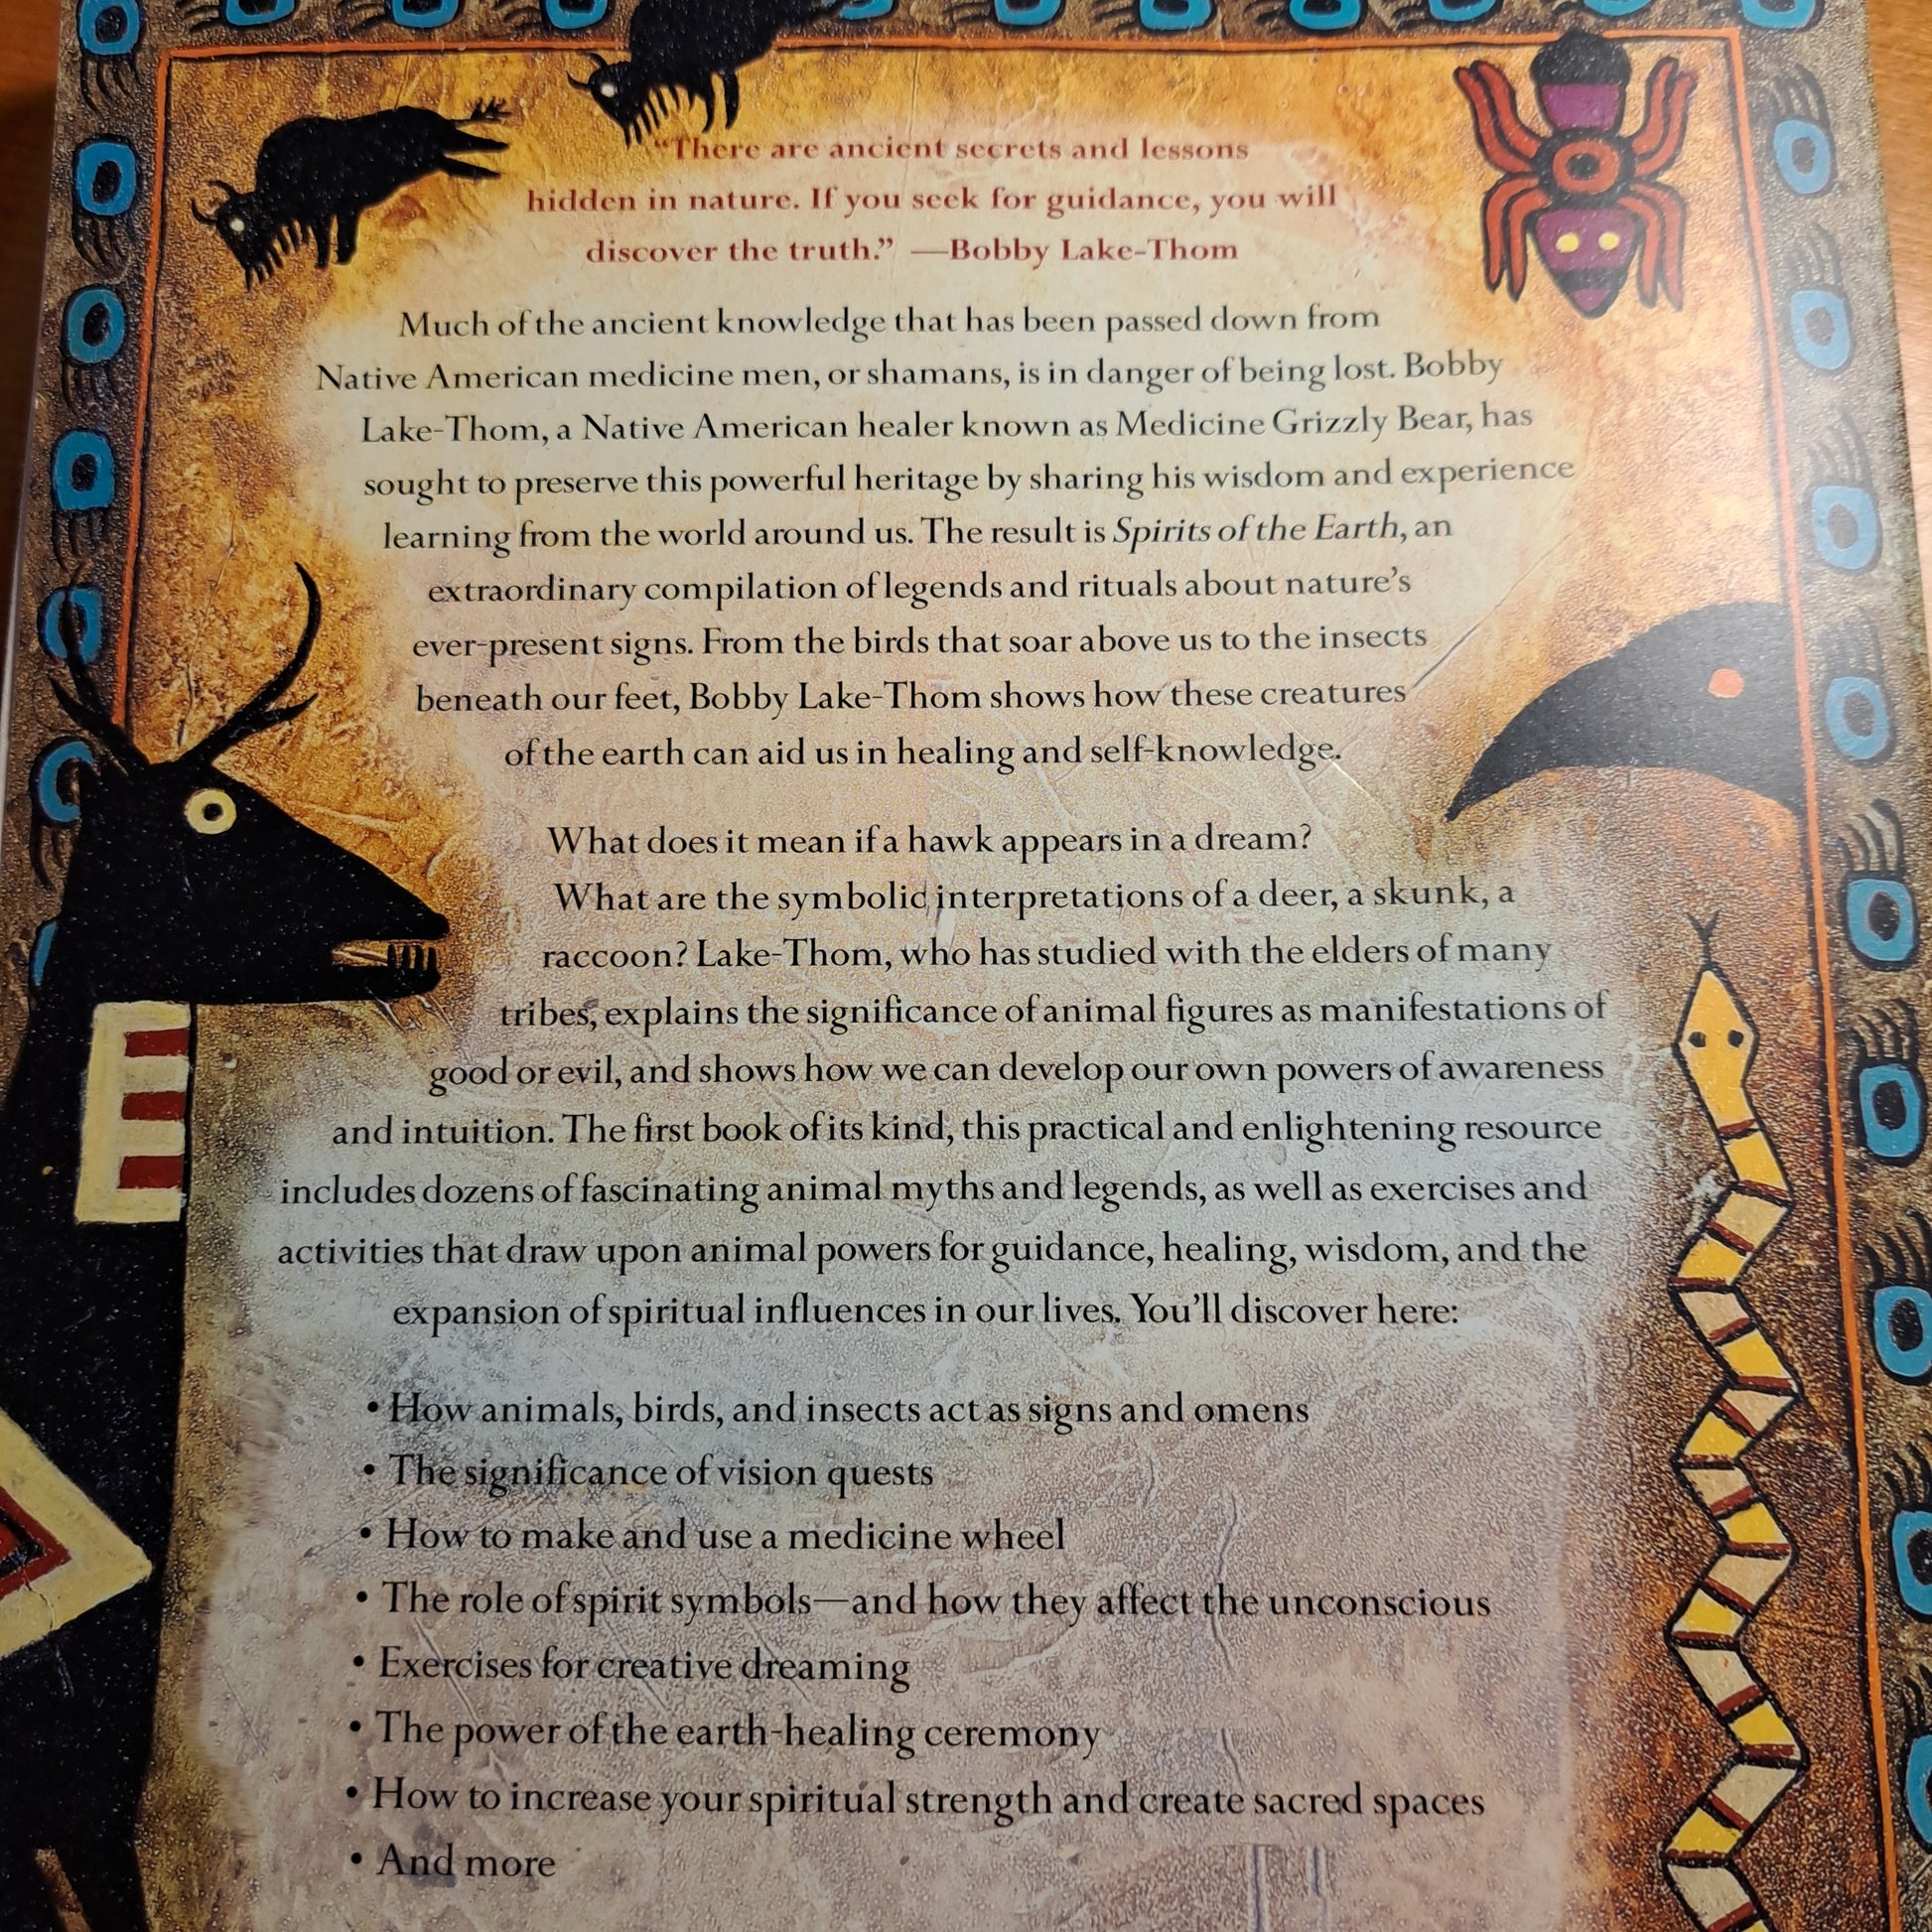 “There are ancient secrets and lessons
hidden in nature. If you seek for guidance, you will
discover the truth.” —Bobby Lake-Thom
Much of the ancient knowledge that has been passed down from
Native American medicine men, or shamans, is in danger of being lost. Bobby
Lake-Thom, a Native American healer known as Medicine Grizzly Bear, has
sought to preserve this powerful heritage by sharing his wisdom and experience
learning from the world around us. The result is Spirits of the Earth, an
extraordinary compilation of legends and rituals about nature’s
ever-present signs. From the birds that soar above us to the insects
beneath our feet, Bobby Lake-Thom shows how these creatures
of the earth can aid us in healing and self-knowledge.
What does it mean if a hawk appears in a dream?
What are the symbolic interpretations of a deer, a skunk, a
raccoon? Lake-Thom, who has studied with the elders of many
tribes, explains the significance of animal figures as manifestations of
good or evil, and shows how we can develop our own powers of awareness
and intuition. The first book of its kind, this practical and enlightening resource
includes dozens of fascinating animal myths and legends, as well as exercises and
activities that draw upon animal powers for guidance, healing, wisdom, and the
expansion of spiritual influences in our lives. You’ll discover here:
• How animals, birds, and insects act as signs and omens
• The significance of vision quests
• How to make and use a medicine wheel
• The role of spirit symbols—and how they affect the unconscious
• Exercises for creative dreaming
• The power of the earth-healing ceremony
• How to increase your spiritual strength and create sacred spaces
• And more